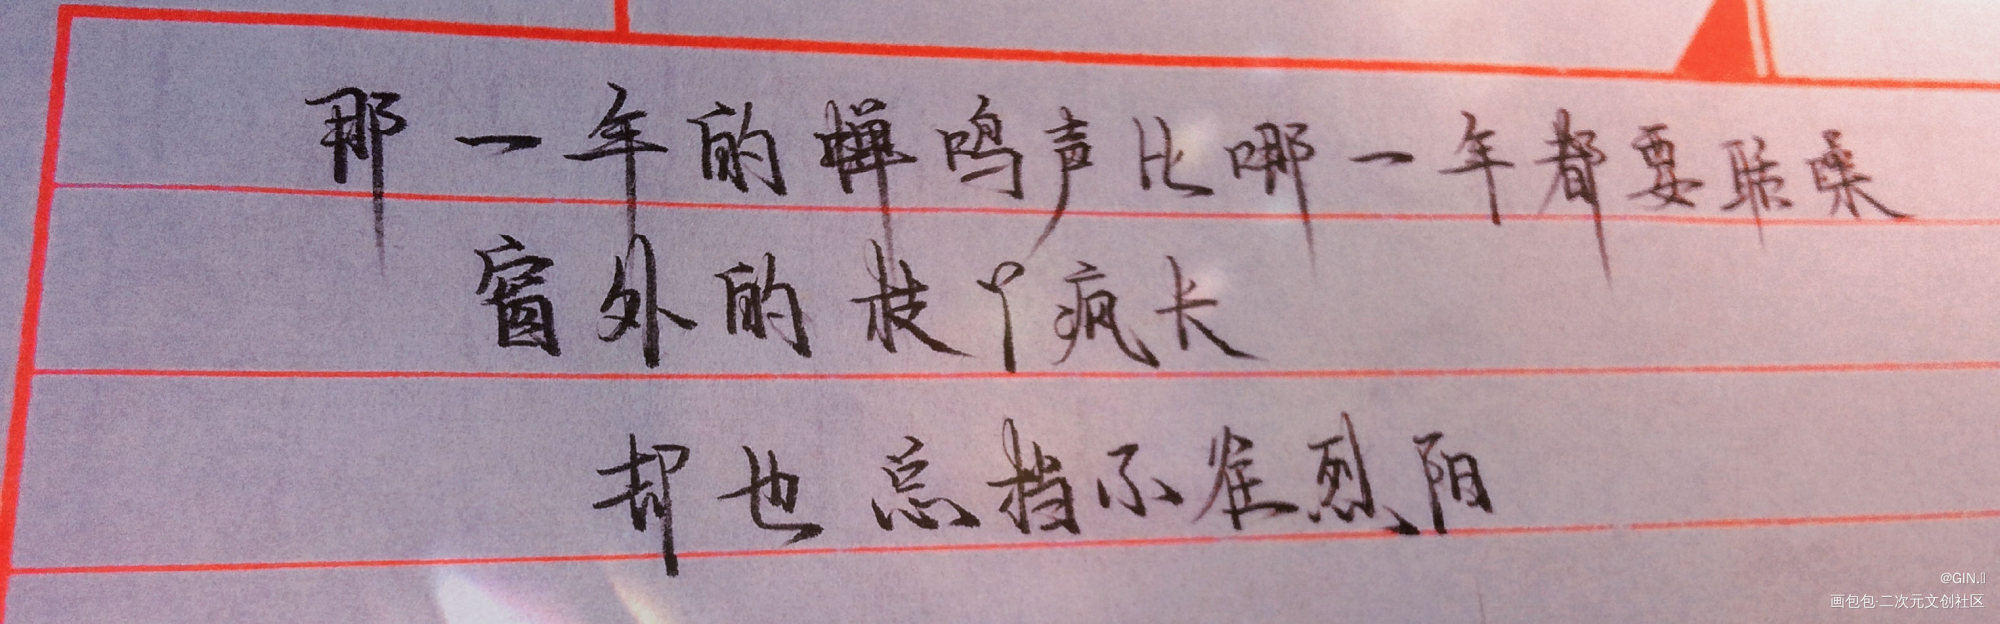 那一年的蝉鸣声比哪一年都要聒噪
窗外的枝丫疯长
却也总挡不住烈阳
@GIN.
画包包·二次元文创社区